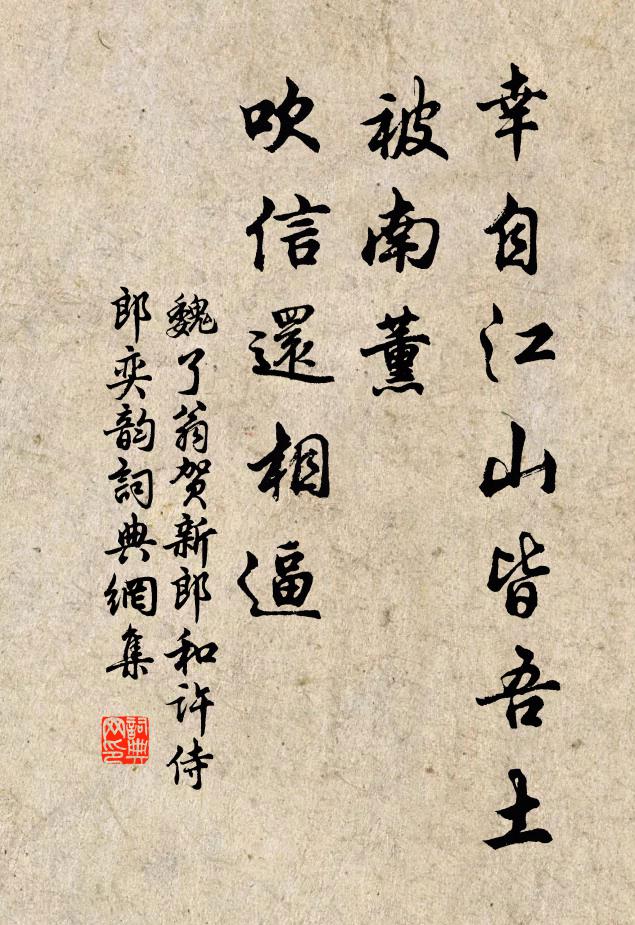 幸自江山皆吾土
被南薰
吹信還相逼
魏了翁贺新郎和许侍
郎奕韵詞典網集
詞典
网印